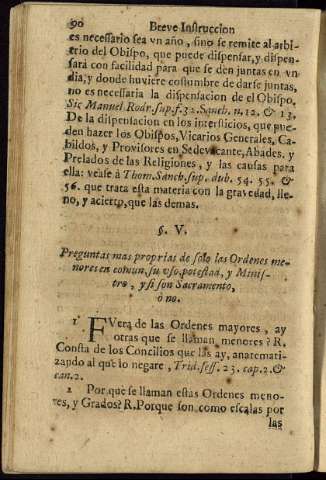 90 Breve Instruccion
es necessario sea vn año, sino se remite al arbi-
trio del Obispo, que puede dispensar, y dispen-
sará con facilidad para que se den juntas en vn
dia; y donde huviere costumbre de darse juntas,
no es necessaria la dispensacion de el Obispo.
Sic Manuel Rodr. sup. f. 32. Sanch. n. 12. & 13.
De la dispensacion en los intersticios, que pue-
den hazer los Obispos, Vicarios Generales, Ca-
bildos, y Provisores en Sedevacante, Abades, y
Prelados de las Religiones, y las causas para
ella: vease à Thom. Sanch. sup. dub. 54. 55. &
56. que trata esta materia con la gravedad, lle-
no, y acierto, que las demas.
§. V.
Preguntas mas proprias de solo las Ordenes me-
nores en comun, su vso, potestad, y Minis-
tro, y si son Sacramento,
ò no.
1 FVera de las Ordenes mayores, ay
otras que se llaman menores? R.
Consta de los Concilios que las ay, anatemati-
zando al que lo negare, Trid. sess. 23. cap. 2. &
can. 2.
2 Por que se llaman estas Ordenes meno-
res, y Grados? R. Porque son como escalas por
las